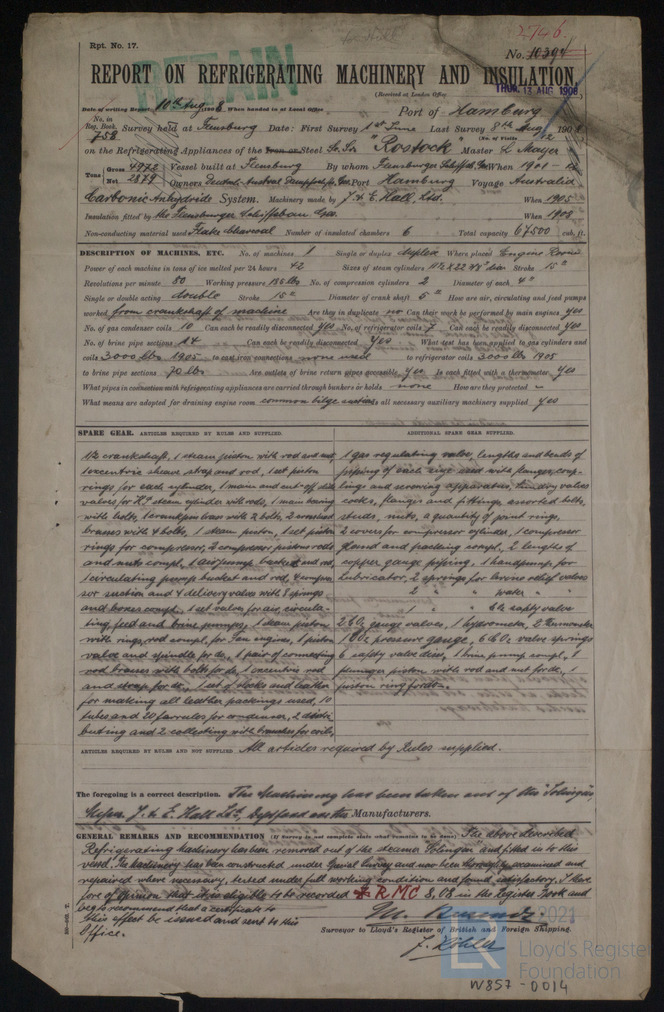 Rpt. No. 17.
2746.
No. 10394
RETAIN
REPORT ON REFRIGERATING MACHINERY AND INSULATION.
(Received at London Office THUR. 13 AUG 1908
Date of writing Report 10th Aug 1908. When handed in at Local Office Port of Hamburg
No. in Reg. Book. 758 Survey held at Flensburg Date: First Survey 1st June Last Survey 8th Aug 1908
(No. of Visits 12
on the Refrigerating Appliances of the Iron or Steel Sc. Sr. "Rostock" Master L. Mayer
Tons Gross 4972 Net 2879 Vessel built at Flensburg By whom Flensburger Schiffsb. Ges When 1901
Owners Deutsch. Austral. Dampfsch. Ges. Port Hamburg Voyage Australia
Carbonic Anhydride System. Machinery made by J. & E. Hall, Ltd. When 1905
Insulation fitted by the Flensburger Schiffsbau Ges. When 1908
Non-conducting material used Flake Charcoal Number of insulated chambers 6 Total capacity 67500 cub. ft.
DESCRIPTION OF MACHINES, ETC. No. of machines 1 Single or duplex duplex Where placed Engine Room
Power of each machine in tons of ice melted per 24 hours 42 Sizes of steam cylinders Stroke 15"
Revolutions per minute 80 Working pressure 185 lbs No. of compression cylinders 2 Diameter of each 4"
Single or double acting double Stroke 15" Diameter of crank shaft 5" How are air, circulating and feed pumps
worked from crankshaft of machine Are they in duplicate no Can their work be performed by main engines yes
No. of gas condenser coils 10 Can each be readily disconnected yes No. of refrigerator coils 7 Can each be readily disconnected yes
No. of brine pipe sections 14 Can each be readily disconnected yes. What test has been applied to gas cylinders and
coils 3000 lbs 1905 to cast iron connections none used to refrigerator coils 3000 lbs 1905
to brine pipe sections 70 lbs Are outlets of brine return pipes accessible yes Is each fitted with a thermometer yes
What pipes in connection with refrigerating appliances are carried through bunkers or holds none How are they protected "
What means are adopted for draining engine room common bilge suctions Is all necessary auxiliary machinery supplied yes
SPARE GEAR. ARTICLES REQUIRED BY RULES AND SUPPLIED.
1/2 crankshaft, 1 steam piston with rod and nut,
1 excentric sheave strap and rod, 1 set piston
rings for each cylinder, 1 main and cut off slide
valves for H.P. steam cylinder with rods, 1 main bearing
with bolts, 1 crankpin brass with 2 bolts, 2 crosshead
brasses with 4 bolts, 1 steam piston, 1 set piston
rings for compressor, 2 compressor pistons rods
and nuts compl. 1 air pump bucket and rod,
1 circulating pump bucket and rod, 4 compres-
sor suction and 4 delivery valves with 8 springs
and boxes compl., 1 set valves for air, circula-
ting, feed and brine pumps, 1 steam piston
with rings, rod compl. for Fan engines, 1 piston
valve and spindle for do., 1 pair of connecting
rod brasses with bolts for do., 1 excentric rod
and strap for do., 1 set of blocks and leather
for making all leather packings used, 10
tubes and 20 ferrules for condenser, 2 distri-
buting and 2 collecting with branches for coils,
ADDITIONAL SPARE GEAR SUPPLIED.
1 gas regulating valve, lengths and bends of
piping of each size used with flanges, coup-
lings and screwing apparatus, sundry valves
cocks, flanges and fittings, assorted bolts,
studs, nuts, a quantity of joint rings,
2 covers for compressor cylinder, 1 compressor
gland and packing compl. 2 lengths of
copper gauge piping, 1 handpump for
lubricator, 2 springs for brine relief valves
2 " " water "
1 " " CO2 safety valve
2 CO2 gauge valves, 1 hydrometer, 2 thermometers
1 CO2 pressure gauge, 6 CO2 valve springs
6 safety valve discs, 1 brine pump compl., 1
plunger piston with rod and nut for do., 1
piston ring for do.
ARTICLES REQUIRED BY RULES AND NOT SUPPLIED. All articles required by Rules supplied.
The foregoing is a correct description. The Machinery has been taken out of the "Solingen"
Messrs. J. & E. Hall Ltd., Deptford are the Manufacturers.
GENERAL REMARKS AND RECOMMENDATION (If Survey is not complete state what remains to be done) The above described
Refrigerating Machinery has been removed out of the steamer Solingen and fitted in to this
vessel. The machinery has been constructed under Special Survey and now been thoroughly examined and
repaired where necessary, tested under full working condition and found satisfactory. I there-
fore of opinion that it is eligible to be recorded RMC 8,08 in the Register Book and
beg to recommend that a certificate to
this effect be issued and sent to this
Office.
Surveyor to Lloyd's Register of British and Foreign Shipping.
2021
Lloyd's Register
Foundation
W857-0014